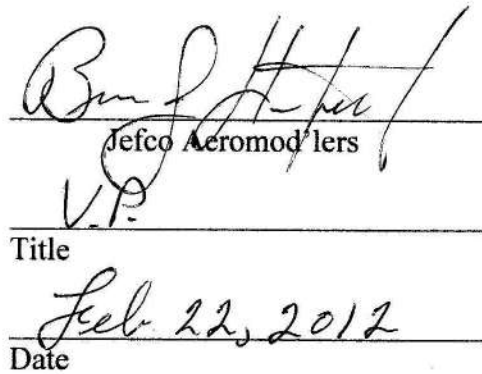 Jefco Aeromod'lers
V.P.
Title
Feb. 22, 2012
Date